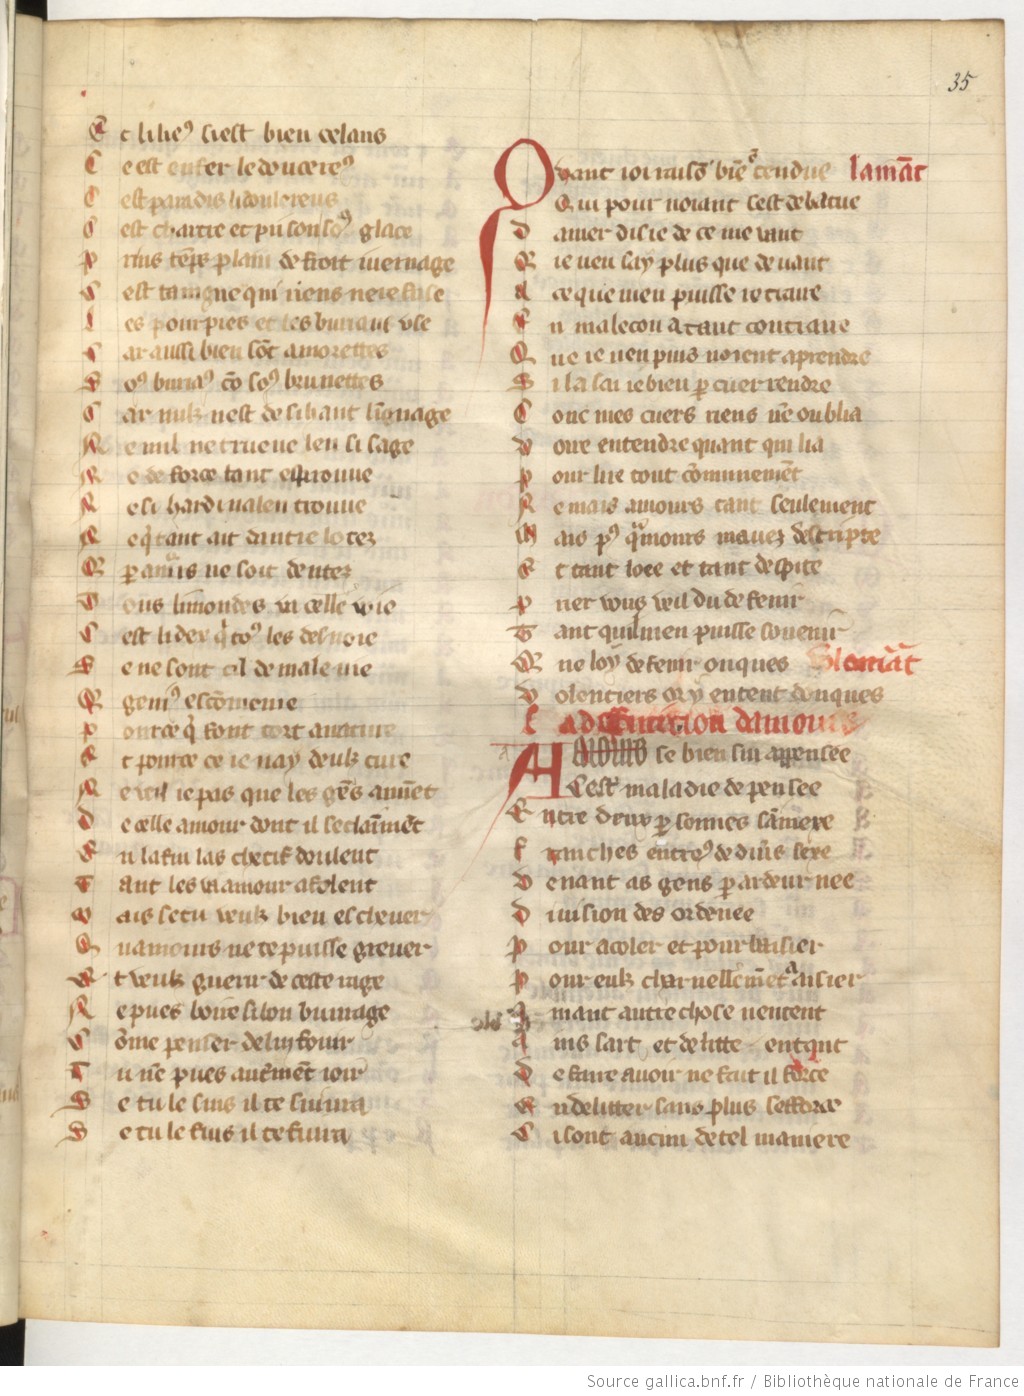 35
Et li lieus si est bien celans
C e est enfer le doucereus
C est paradis li doulereus
C est chartre et prison souqz glace
P rins tẽps plain de froit ivernage
C est taingne qui riens ne refuse
L es pourpres et les buriaus use
C ar aussi bien sõt amorettes
S oꝰ buriaꝰ cõ soꝰ brunettes
C ar nulz nest de si haut lingnage
N e nul ne trueve len si sage
N e de force tant esprouve
N e si hardi nalen trouve
N e q̃ tant ait dautre lotez
Q par amrs ne soit dentez
T ous li mondes va celle voie
C est li dex q̃ toꝰ les desvoie
S e ne sont cil de male vie
Q geniꝰ escõmenie
P ource q̃ font tort a nature
E t pource ce je nay deulz cure
N e veil je pas que les gẽs aimẽt
D e celle amour dont il se claimmẽt
E n la fin las chetif doulent
T ant les va amour afolent
M ais se tu veulz bien eschever
Q uamours ne te puisse grever
E t veulz guerir de ceste rage
N e pues boire si bon buvrage
C õme penser de lui fouir
T u nẽ pues autrement joir
S e tu le suis il te suivra
S e tu le fuis il te fuira
Quant joi raisõ biẽ entendue lamãt
Qui pour noiant sest debatue
D amer dis je de ce me vant
R ie nen say plus que devant
A ce que men puisse retraire
E n ma lecon a tant contraire
Q ue je nen puis noient aprendre
S i la sai je bien par cuer rendre
C onc mes cuers riens nẽ oublia
V oire entendre quant qui li a
P our lire tout cõmunemẽt
N e mais a mours tant seulement
M ais pꝰ quamours mavez descripte
E t tant loee et tant despite
P rier vous veil du defenir
T ant quil men puisse souvenir
Q ne loy defenir onques
V olentiers or y entent donques
La diffinicion damours
Amours se bien sui appensee
Cest maladie de pensee
E ntre deux personnes sãnexe
F ranches entreꝰ de divrs sexe
V enant as gens par ardeur nee
D ivision desordenee
P our acoler et pour baisier
P our eulz charnellemẽt aaisier
A mant autre chose nentent
A ins sart et delitte entent
D e faire avoir ne fait il force
A u delitter sans plus sefforce
C i sont aucun de tel maniere
Source gallica.bnf.fr / Bibliothèque nationale de France